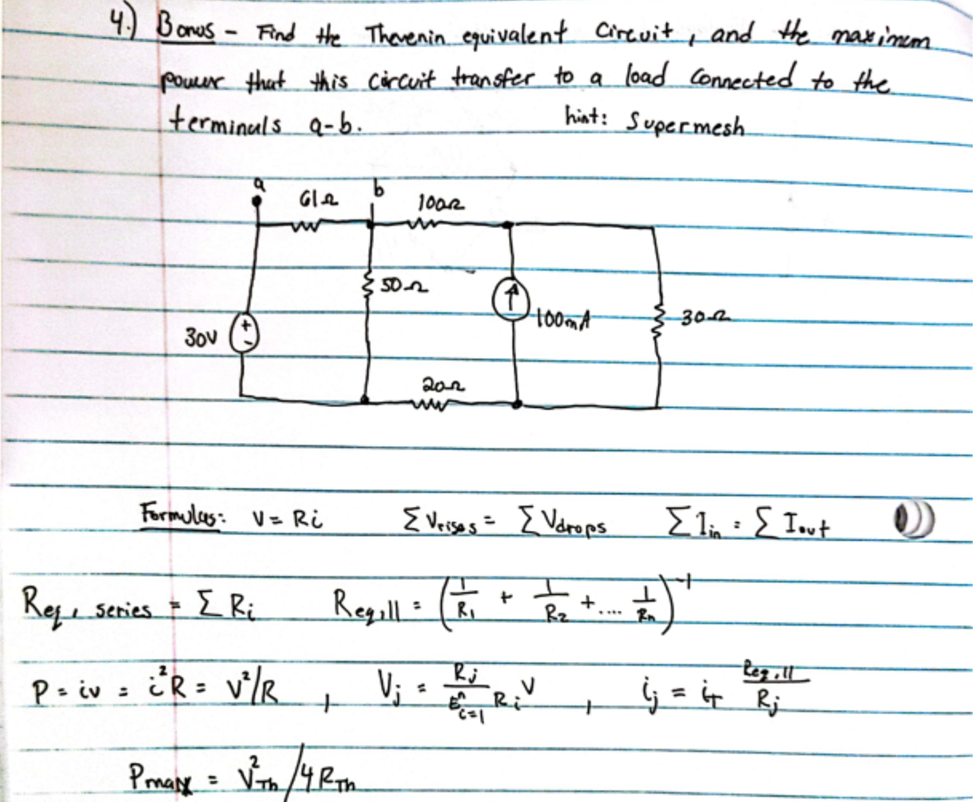 4.) Bonus - Find the Thevenin equivalent circuit, and the maximum
power that this circuit transfer to a load connected to the
terminals a-b. hint: Supermesh
a 61Ω b 100Ω
50Ω
30V + - 100mA 30Ω
20Ω
Formulas: V = Ri ΣVrises = ΣVdrops ΣIin = ΣIout
Req, series = ΣRi Req,|| = (1/R1 + 1/R2 + .... 1/Rn)^-1
P = iv = i²R = V²/R , Vj = Rj/Σ^n_{i=1} Ri V , ij = iT Req,||/Rj
Pmax = V²Th/4RTh